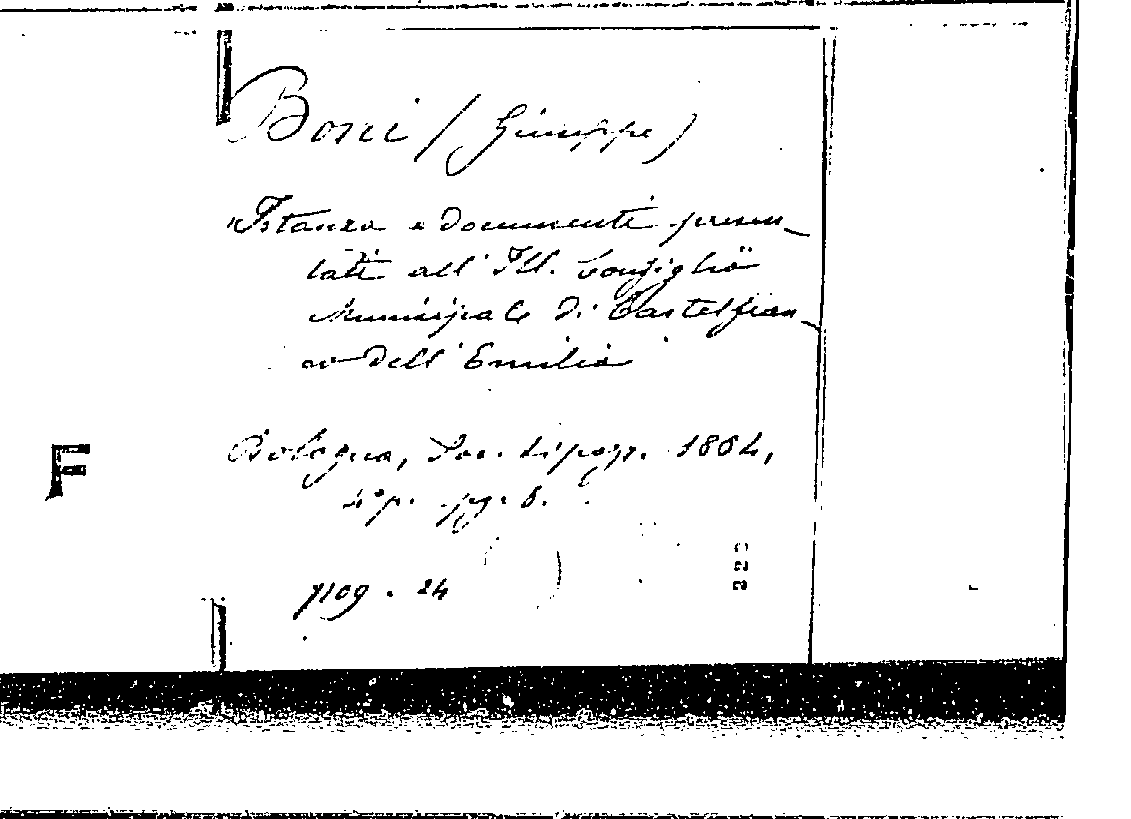 Boni (Giuseppe)
"Istanza e documenti presen-
tati all' Ill. Consiglio
Municipale di Castelfran-
co dell' Emilia
F
Bologna, Soc. tipogr. 1864,
4°p. pg. 8.
pog. 24